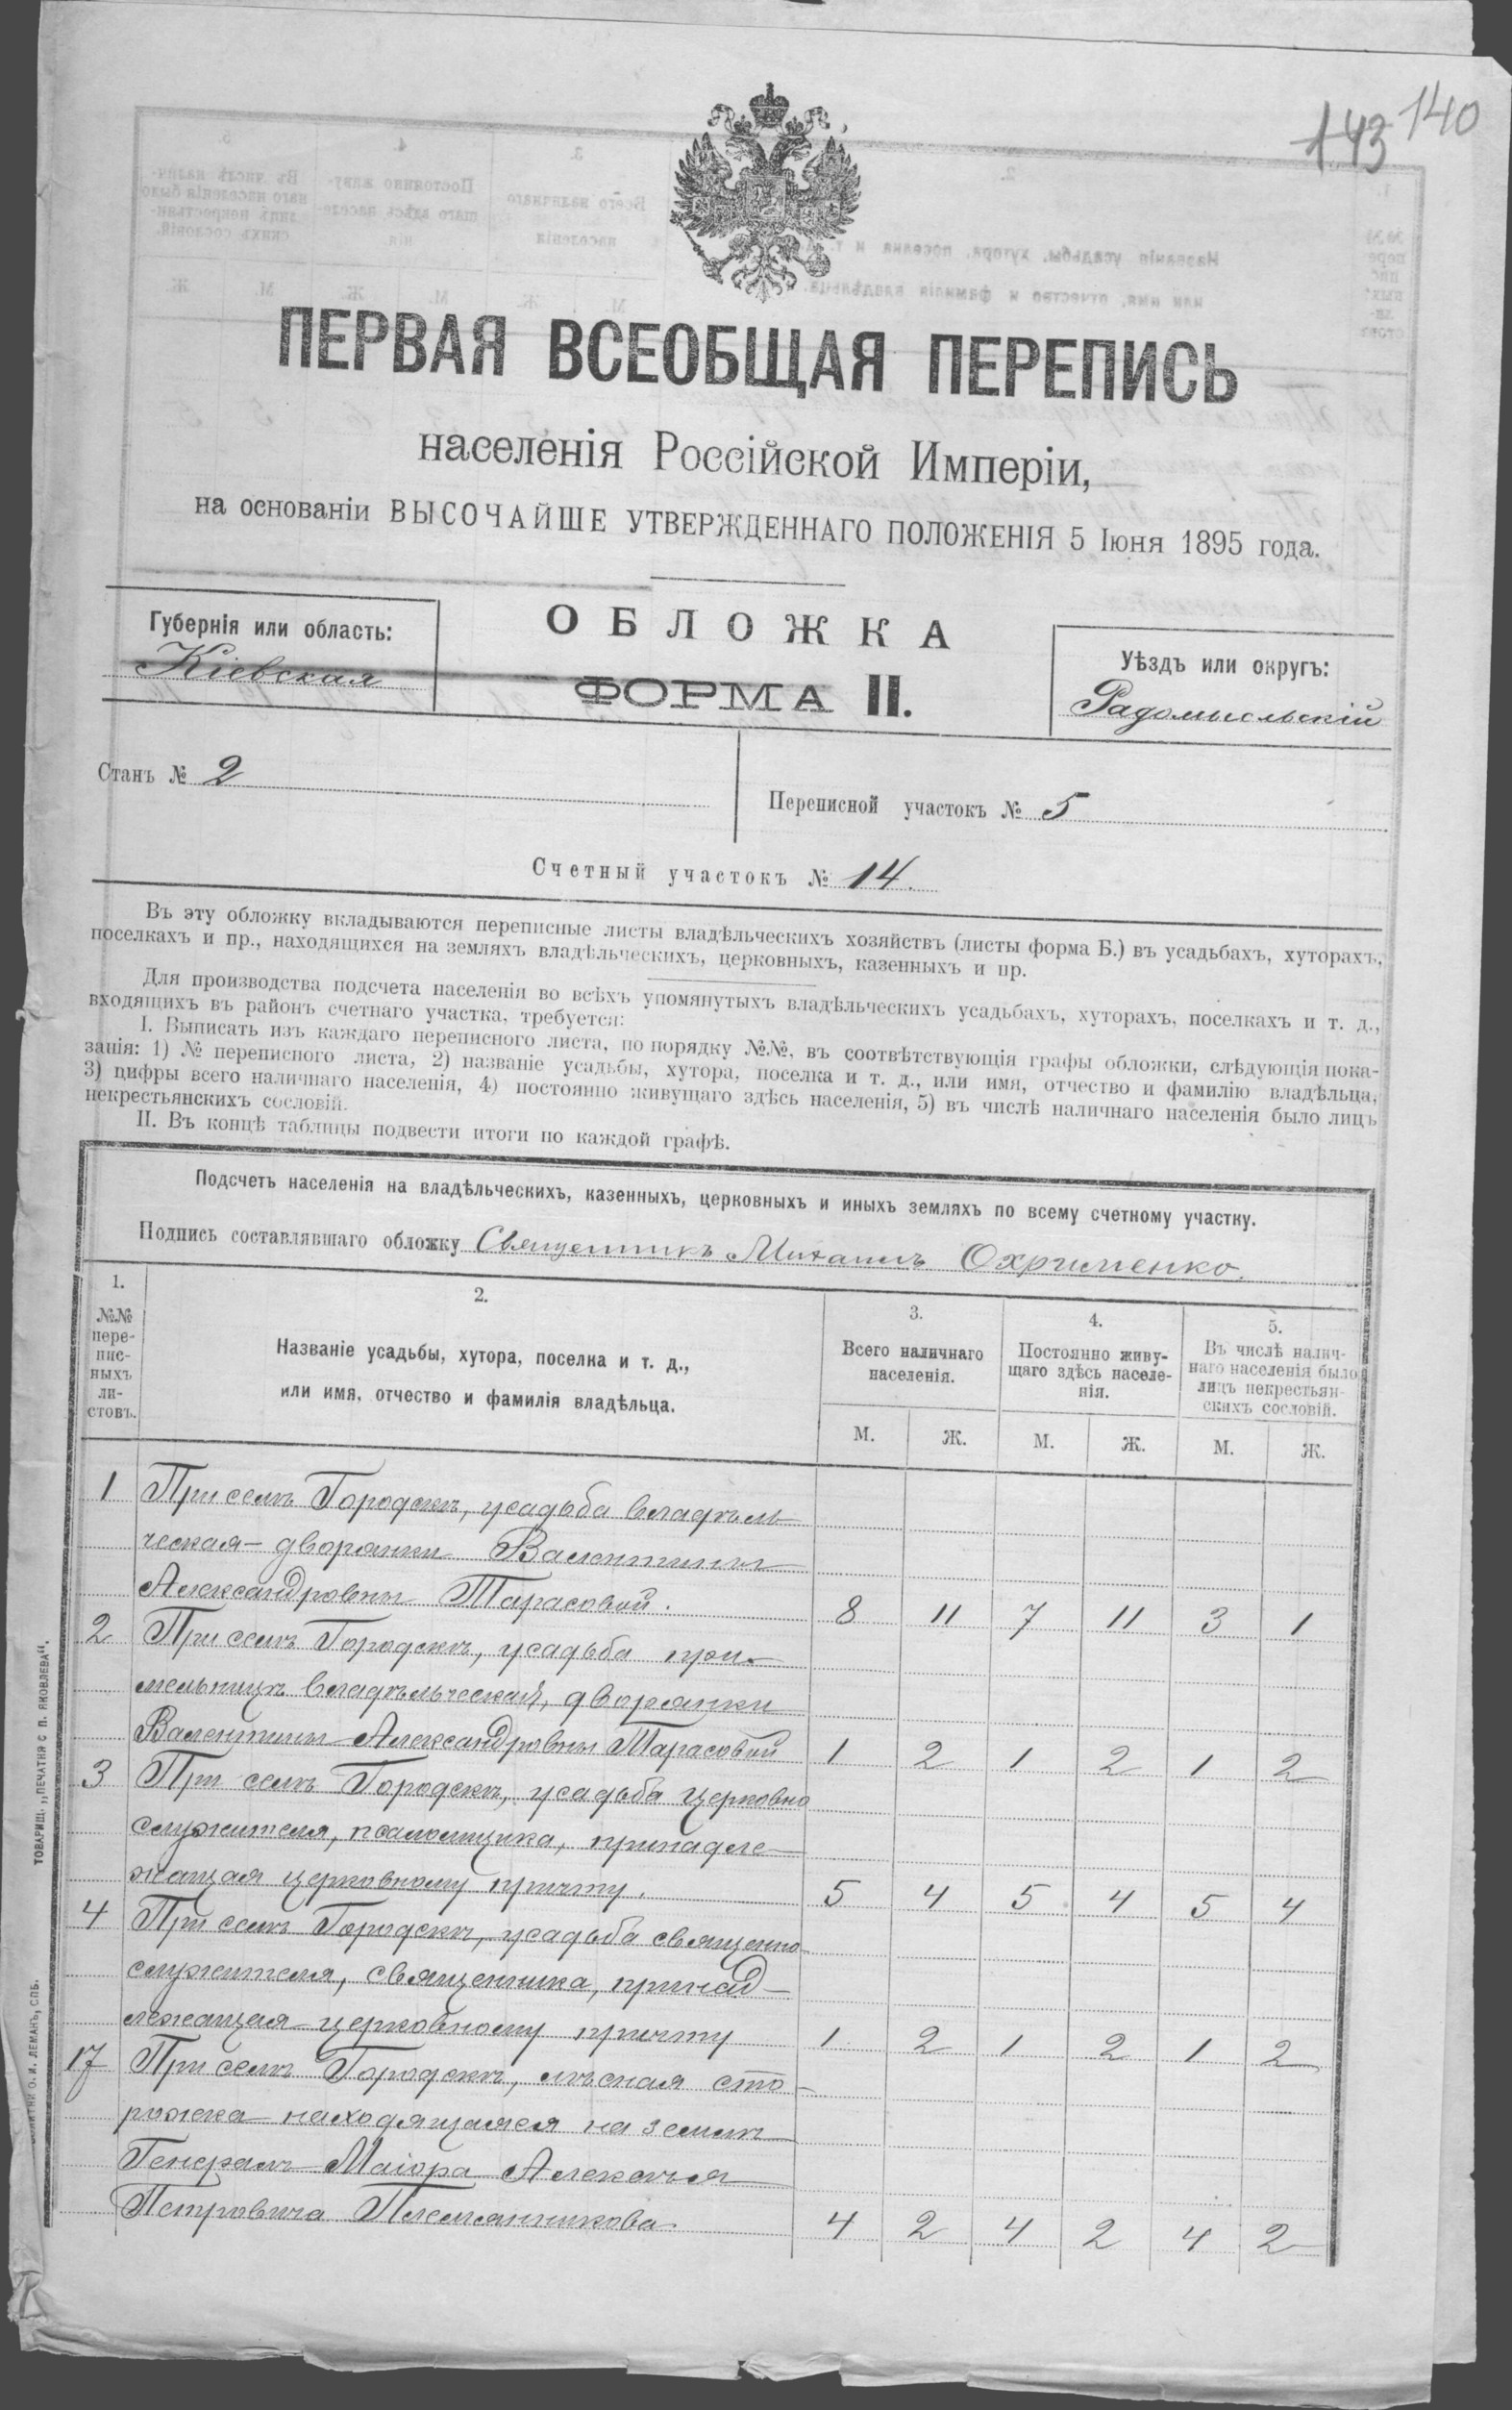 143 140
ПЕРВАЯ ВСЕОБЩАЯ ПЕРЕПИСЬ
населенія Россійской Имперіи,
на основаніи ВЫСОЧАЙШЕ УТВЕРЖДЕННАГО ПОЛОЖЕНІЯ 5 Іюня 1895 года.
Губернія или область:
Кіевская
ОБЛОЖКА
ФОРМА II.
Уѣздъ или округъ:
Радомысльскій
Станъ № 2
Переписной участокъ № 5
Счетный участокъ № 14.
Въ эту обложку вкладываются переписные листы владѣльческихъ хозяйствъ (листы форма Б.) въ усадьбахъ, хуторахъ,
поселкахъ и пр., находящихся на земляхъ владѣльческихъ, церковныхъ, казенныхъ и пр.
Для производства подсчета населенія во всѣхъ упомянутыхъ владѣльческихъ усадьбахъ, хуторахъ, поселкахъ и т. д.,
входящихъ въ районъ счетнаго участка, требуется:
I. Выписать изъ каждаго переписного листа, по порядку №№, въ соотвѣтствующія графы обложки, слѣдующія пока-
занія: 1) № переписного листа, 2) названіе усадьбы, хутора, поселка и т. д., или имя, отчество и фамилію владѣльца,
3) цифры всего наличнаго населенія, 4) постоянно живущаго здѣсь населенія, 5) въ числѣ наличнаго населенія было лицъ
некрестьянскихъ сословій.
II. Въ концѣ таблицы подвести итоги по каждой графѣ.
Подсчетъ населенія на владѣльческихъ, казенныхъ, церковныхъ и иныхъ земляхъ по всему счетному участку.
Подпись составлявшаго обложку Священникъ Михаилъ Охрименко.
1.
№№
пере-
пис-
ныхъ
ли-
стовъ.
2.
Названіе усадьбы, хутора, поселка и т. д.,
или имя, отчество и фамилія владѣльца.
3.
Всего наличнаго
населенія.
4.
Постоянно живу-
щаго здѣсь населе-
нія.
5.
Въ числѣ налич-
наго населенія было
лицъ некрестьян-
скихъ сословій.
М. Ж. М. Ж. М. Ж.
1 При селѣ Городскѣ, усадьба владѣль
ческая - дворянки Валентины
Александровны Тарасовой. 8 11 7 11 3 1
2 При селѣ Городскѣ, усадьба при
мельницѣ владѣльческая, дворянки
Валентины Александровны Тарасовой 1 2 1 2 1 2
3 При селѣ Городскѣ, усадьба церковно
служителя, псаломщика, принадле-
жащая церковному причту. 5 4 5 4 5 4
4 При селѣ Городскѣ, усадьба священно-
служителя, священника, принад-
лежащая церковному причту 1 2 1 2 1 2
17 При селѣ Городскѣ, лѣсная сто-
рожка находящаяся на землѣ
Генералъ Маіора Алексѣя
Петровича Племянникова. 4 2 4 2 4 2
ТОВАРИЩ. „ПЕЧАТНЯ С. П. ЯКОВЛЕВА“.
О. И. ЛЕМАНЪ, СПБ.